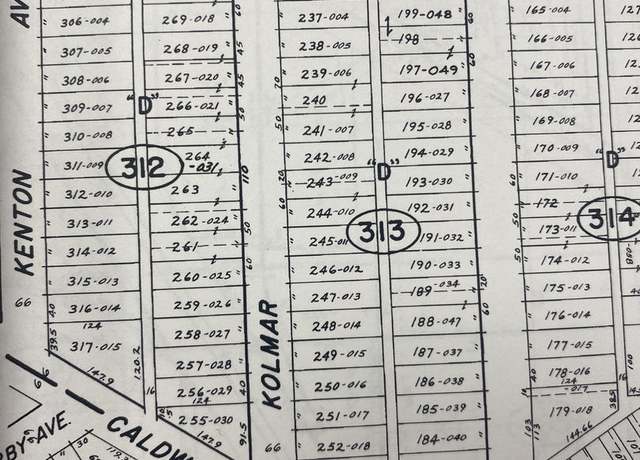 AV
306-004
307-005
308-006
309-007
310-008
311-009
312-010
313-011
314-012
315-013
316-014
124
317-015
KENTON
66
40
39.5
147.9
120.2
16
"D"
312
269-018
268-019
267-020
266-021
265
264
-031
263
262-024
261
260-025
259-026
258-027
257-028
256-029
124
255-030
147.9
60
45
45
50
110
50
60
40
91.5
KOLMAR
66
237-004
238-005
239-006
240
241-007
242-008
243-009
244-010
245-011
246-012
247-013
248-014
249-015
250-016
251-017
252-018
70
50
120
60
"D"
313
199-048
198
197-049
196-027
195-028
194-029
193-030
192-031
191-032
190-033
189-034
188-047
187-037
186-038
185-039
184-040
60
60
120
60
165-004
166-005
167-006
168-007
169-008
170-009
171-010
172
173-011
174-012
175-013
176-014
177-015
178-016
124
-017
179-018
60
50
50
40
103
113
144.66
38.5
16
100
"D"
314
66
BY AVE.
CALDW
30